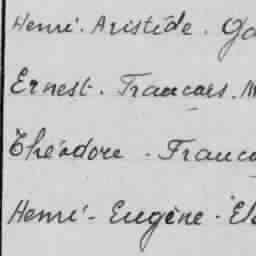 Henri. Aristide. Ga
Ernest. Francois. M
Théodore. Franco
Henri - Eugène. El